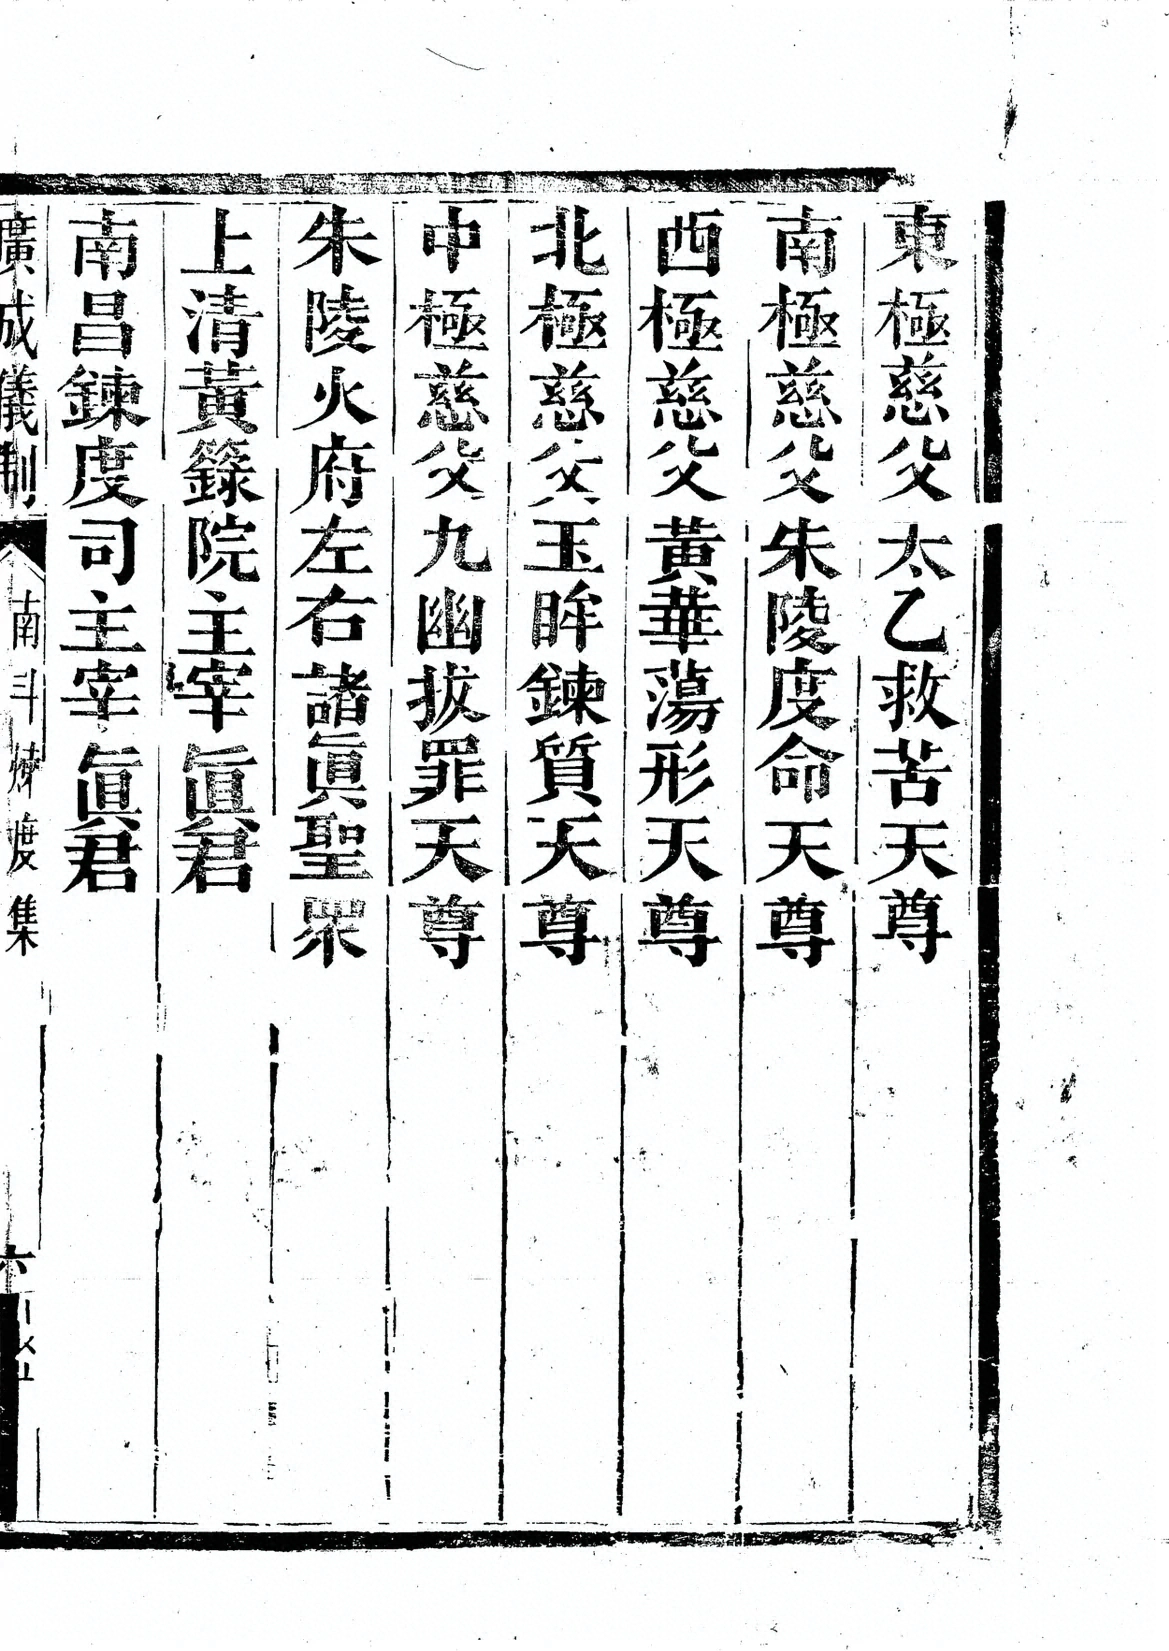 東極慈父太乙救苦天尊
南極慈父朱陵度命天尊
西極慈父黃華蕩形天尊
北極慈父玉眸鍊質天尊
中極慈父九幽拔罪天尊
朱陵火府左右諸眞聖眾
上清黃籙院主宰眞君
南昌鍊度司主宰眞君
廣成儀制 南斗煉度集 六